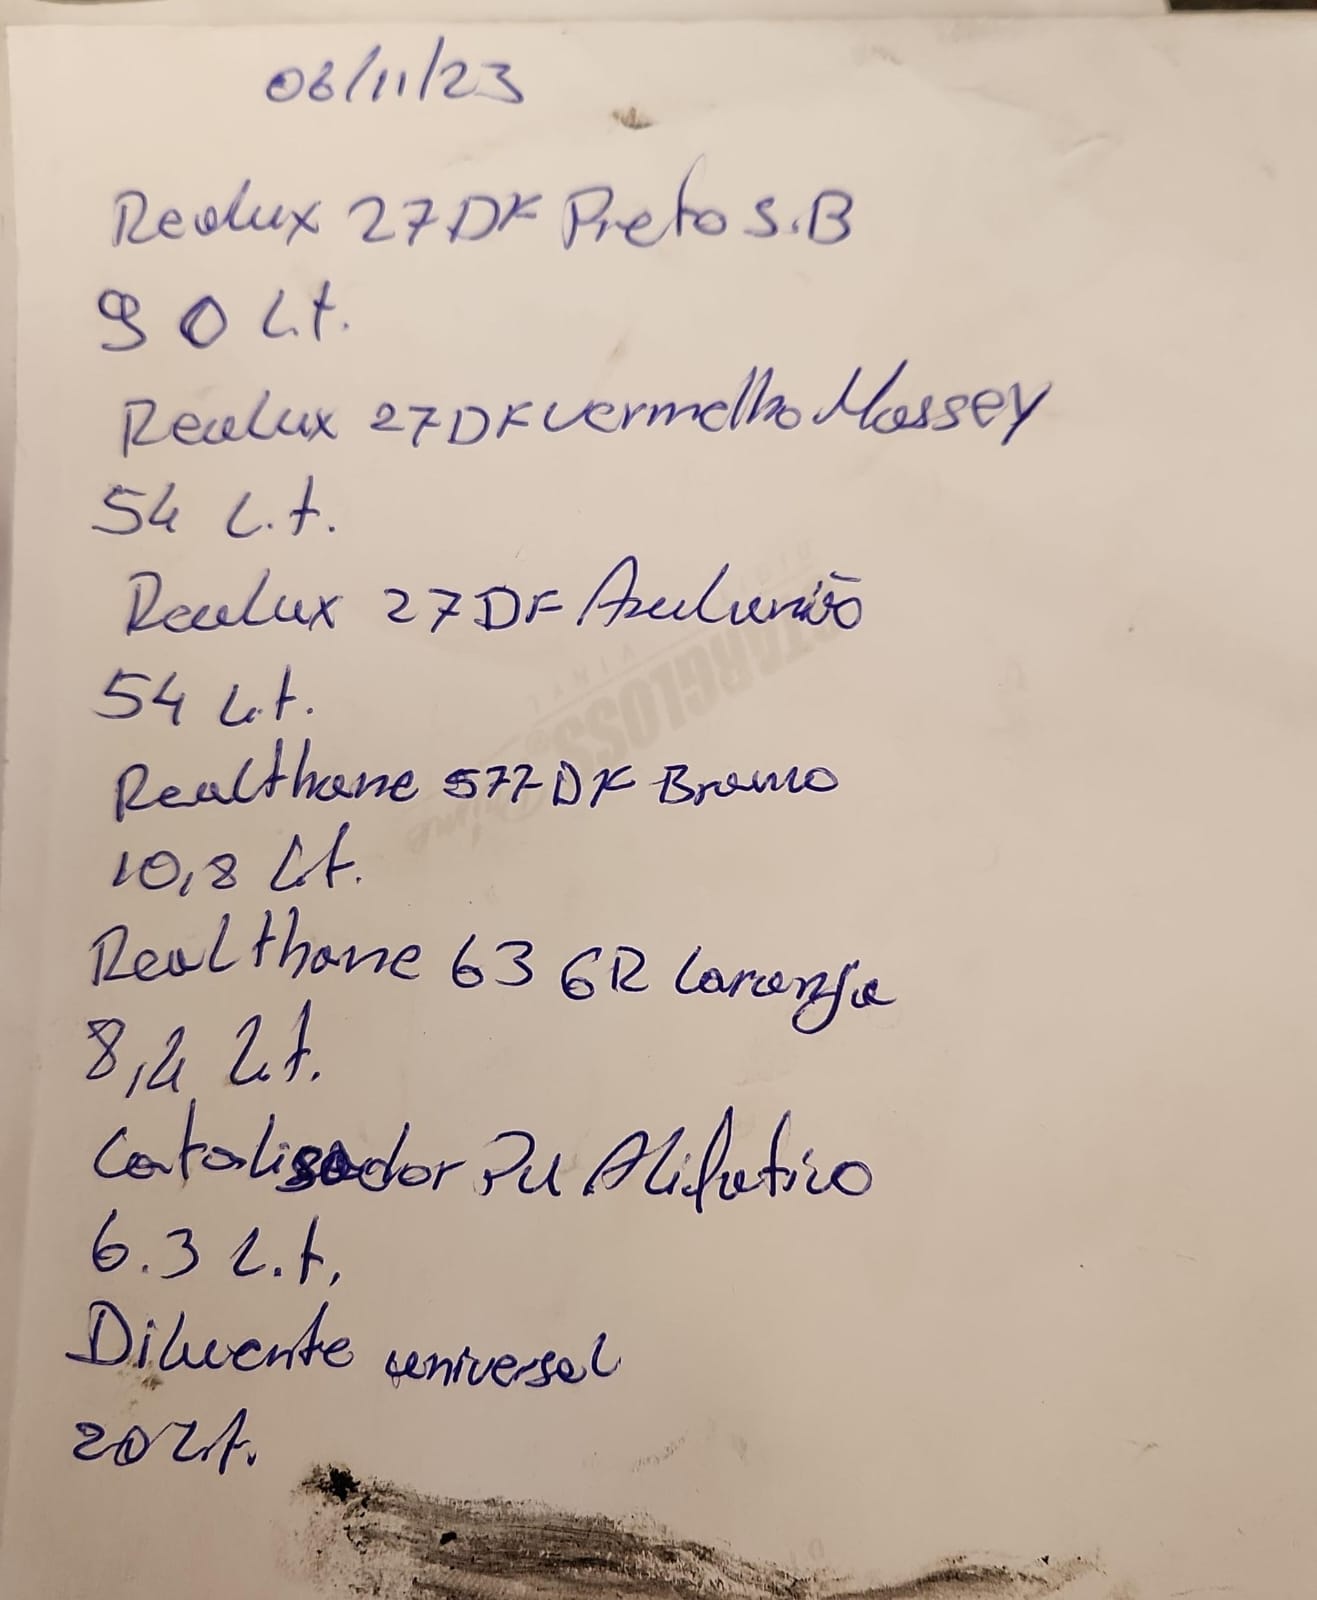 06/11/23
Realux 27DF Preto S.B
90 Lt.
Realux 27DF vermelho Massey
54 L.t.
Realux 27DF Azul união
54 Lt.
Realthane 577DF Branco
10,8 Lt.
STARGLOSS
Realthane 63 6R laranja
8,4 Lt.
Catalisador PU Alifatico
6.3 L.t,
Diluente universal
20 Lt.